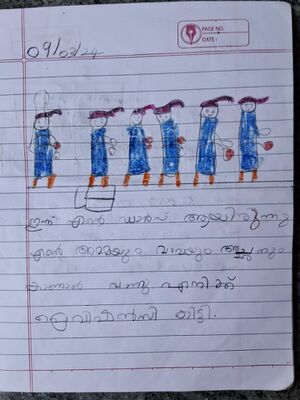 PAGE NO:
DATE:
09/03/24
ഇന്ന് എന്റെ ഡാൻസ് ആയിരുന്നു
എന്റെ അമ്മയും വാവയും അച്ഛനും
കാണാൻ വന്നു എനിക്ക്
കിട്ടി.